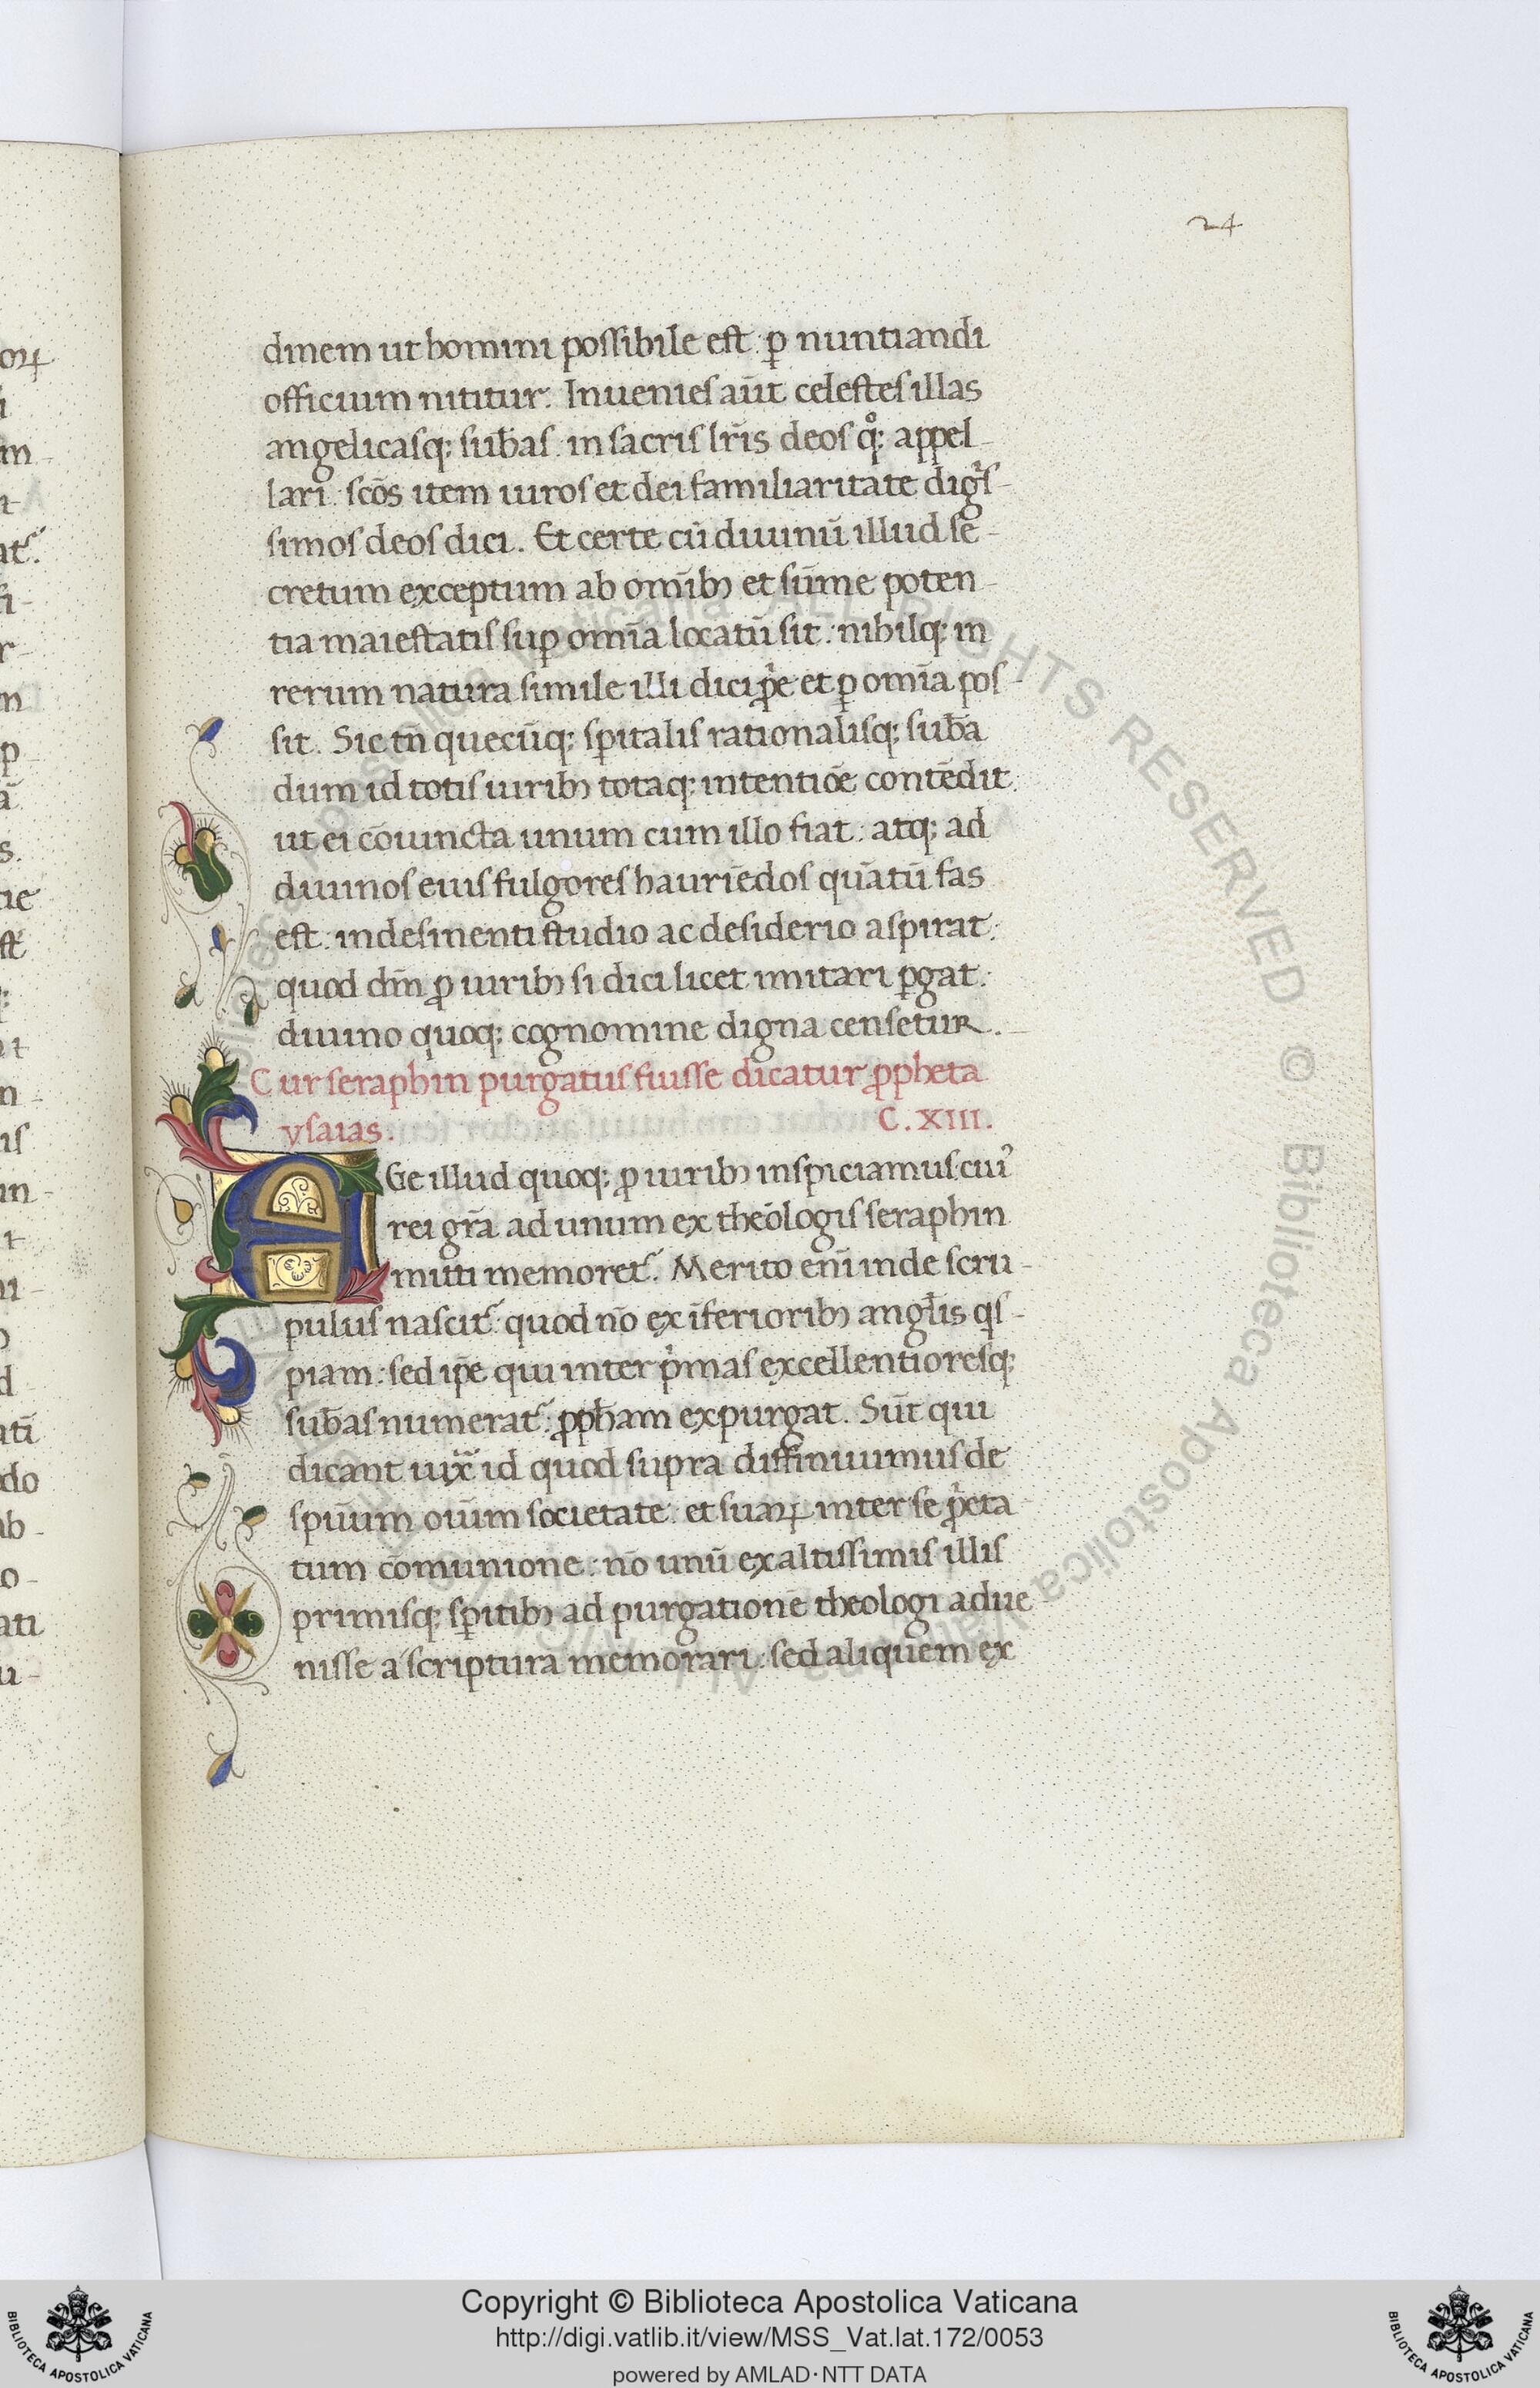 24
dinem ut homini possibile est: ꝑ nuntiandi
officium nititur. Inuenies aūt celestes illas
angelicasq; sub̄as in sacris lr̄is deos qͦ; appel-
lari: scōs item uiros et dei familiaritate digͥs-
simos deos dici. Et certe cū diuinū illud se-
cretum exceptum ab omībꝫ et sūme poten-
tia maiestatis suꝑ omīa locatū sit: nihilq; in
rerum natura simile illi dici p̱ͥe et ꝑ omīa pos-
sit. Sic tn̄ quecūq; sꝑitalis rationalisq; sub̄a
dum id totis uiribꝫ totaq; intentiōe contēdit
ut ei cōiuncta unum cum illo fiat: atq; ad
diuinos eius fulgores hauriēdos quātū fas
est: indesinenti studio ac desiderio aspirat:
quod dm̄ ꝓ uiribꝫ si dici licet imitari ꝑgat:
diuino quoq; cognomine digna censetur.
Cur seraphin purgatus fuisse dicatur ꝓpheta
ysaias. C. XIII.
AGe illud quoq; ꝓ uiribꝫ inspiciamus cuiꝰ
rei gr̄a ad unum ex theōlogis seraphin
mitti memoret᷑. Merito enī inde scru-
pulus nascit᷑: quod nō ex īferioribꝫ angl̄is qͥs-
piam: sed ip̄e qui inter pͥmas excellentioresq;
sub̄as numerat᷑: ꝓph̄am expurgat. Sūt qui
dicant iuxᷓ id quod supra diffinuimus de
sp̄uum oīum societate: et suaꝝ inter se ꝓͥeta
tum cōmunione: nō unū ex altissimis illis
primisq; sꝑitibꝫ ad purgationē theologi adue
nisse a scriptura memorari: sed aliquem ex
orꝝ
Copyright © Biblioteca Apostolica Vaticana
http://digi.vatlib.it/view/MSS_Vat.lat.172/0053
powered by AMLAD·NTT DATA
BIBLIOTECA APOSTOLICA VATICANA
BIBLIOTECA APOSTOLICA VATICANA